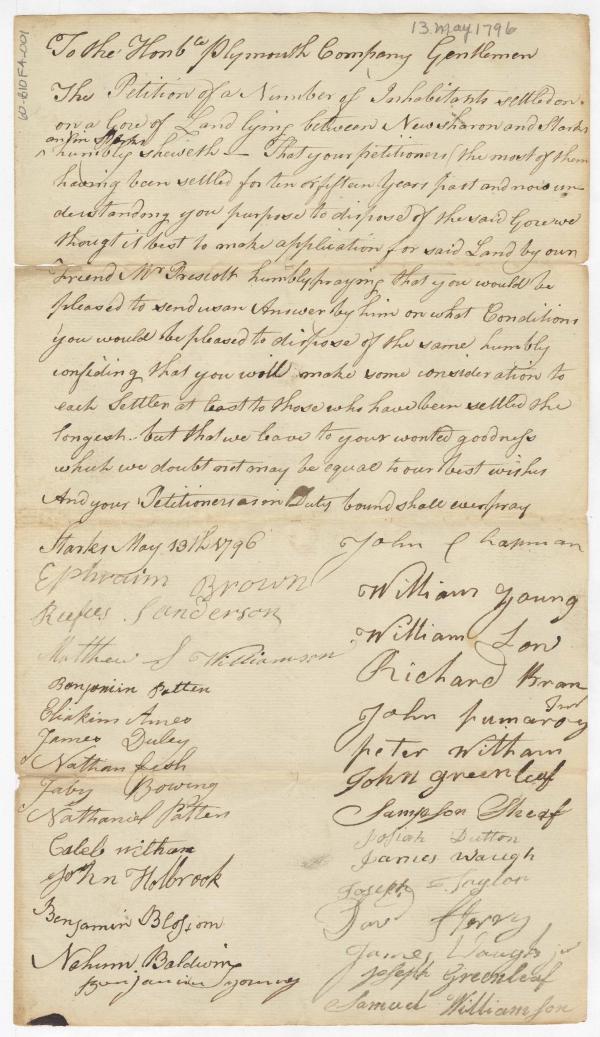 13. May 1796
60-610 F4-001
To the Honble Plymouth Company Gentlemen
The Petition of a Number of Inhabitants settled on
on a Gore of Land lying between New Sharon and Starks
and in Starks
^ humbly sheweth — That your petitioners (the most of them
having been settled for ten or fifteen Years past and now un-
derstandong you purpose to dispose of the said Gore we
thougt it best to make application for said Land by our
Friend Mr Prescott humbly praying that you would be
pleased to send us an Answer by him on what Conditions
you would be pleased to dispose of the same humbly
confiding that you will make some consideration to
each Settler at least to those who have been settled the
longest. but that we leave to your wonted goodness
which we doubt not may be equal to our best wishes
And your Petitioners as in Duty bound shall ever pray
Starks May 13th 1796
Ephraim Brown
Rufus Sanderson
Matthew S Williamson
Benjamin Patten
Eliakim Ames
James Duley
Nathan
Jaby Bowing
Nathaniel Patten
Caleb witham
John Holbrook
Benjamin Blossom
Nahum Baldwin
Benjamin young
John Chapman
William Young
William Lov
Richard Bran
John Jun
peter Witham
John greenleaf
Sampson Sheaf
Josiah Dutton
James Waugh
Joseph Taylor
James Waugh jr
Joseph Greenleaf
Samuel Williamson